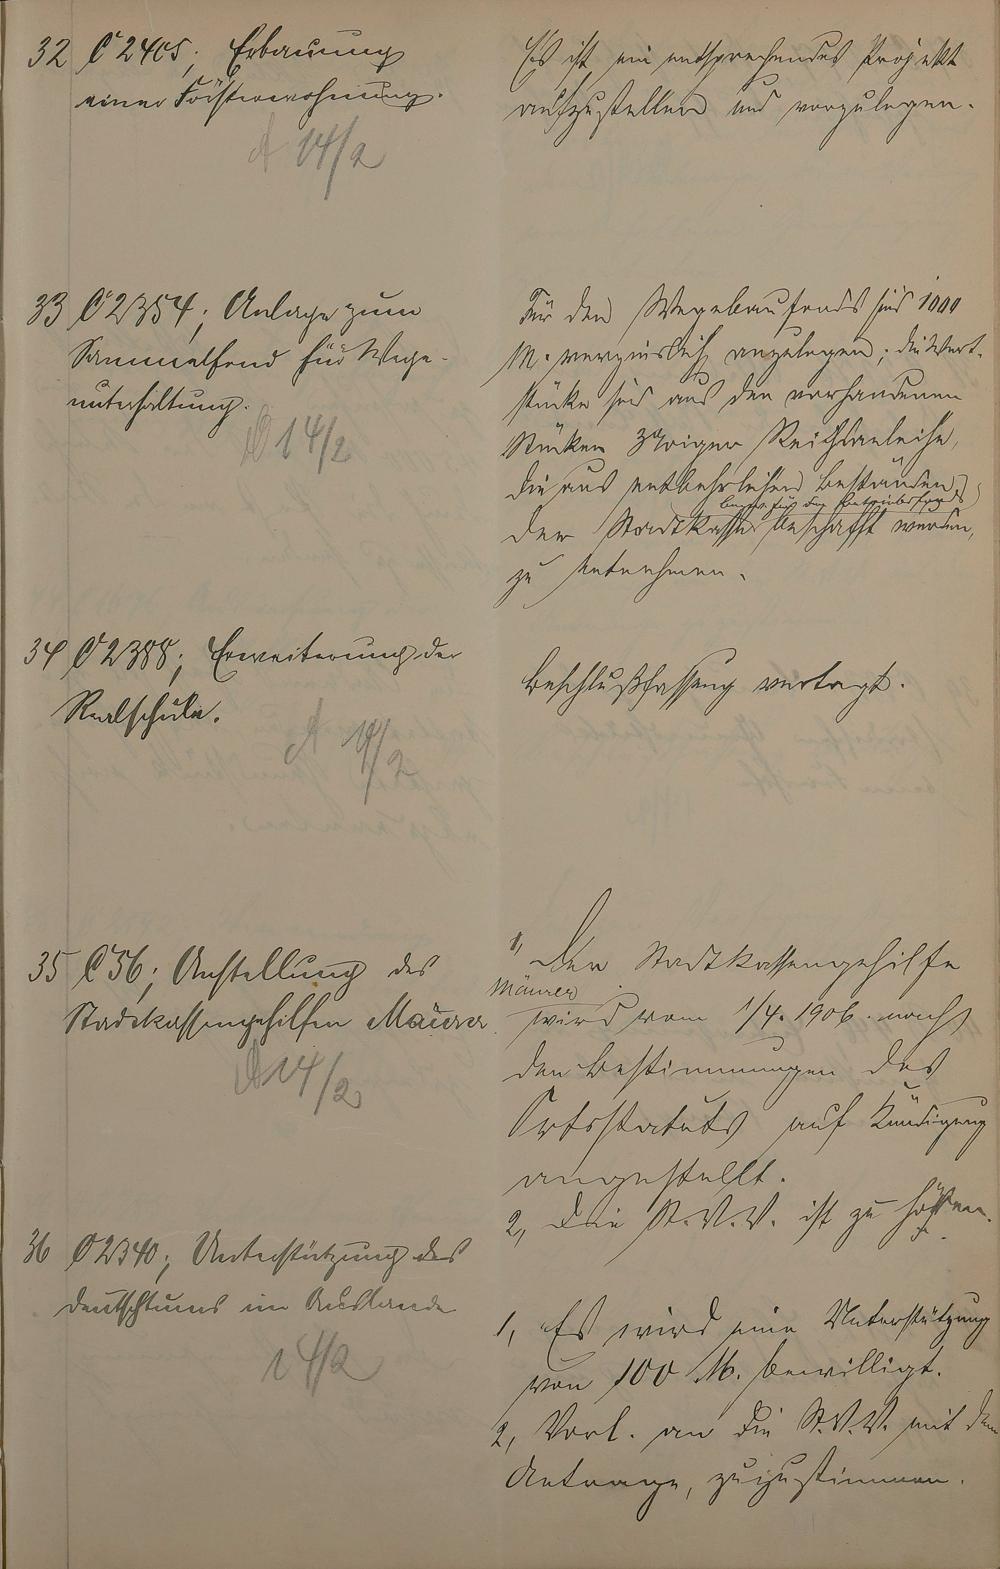 32 C 2405; Erbauung
einer Försterwohnung.
14/2
Es ist ein entsprechendes Projekt
aufzustellen und vorzulegen.
33 C 2354; Anlage zum
Sammelfond für Wege-
unterhaltung.
14/2
Für den Wegebaufonds sind 1000
M. verzinslich anzulegen; die Wert-
stücke sind aus den vorhandenen
Stücken 3%iger Reichsanleihe,
die aus entbehrlichen Beständen
bezw. für den Betriebsfonds
der Stadtkasse beschafft werden,
zu entnehmen.
34 C 2388; Erweiterung der
Realschule.
14/2
Beschlußfassung vertagt.
35 C 56; Anstellung des
Stadtkassengehilfen Mäurer
14/2
1, Der Stadtkassengehilfe
Mäurer
wird vom 1/4. 1906. nach
den Bestimmungen des
Ortsstatuts auf Kündigung
angestellt.
2, Die St.V.V. ist zu hören.
36 C 2340; Unterstützung des
Deutschtums im Auslande
14/2
1, Es wird eine Unterstützung
von 100 M. bewilligt.
2, Vorl. an die St.V.V. mit dem
Antrage, zuzustimmen.